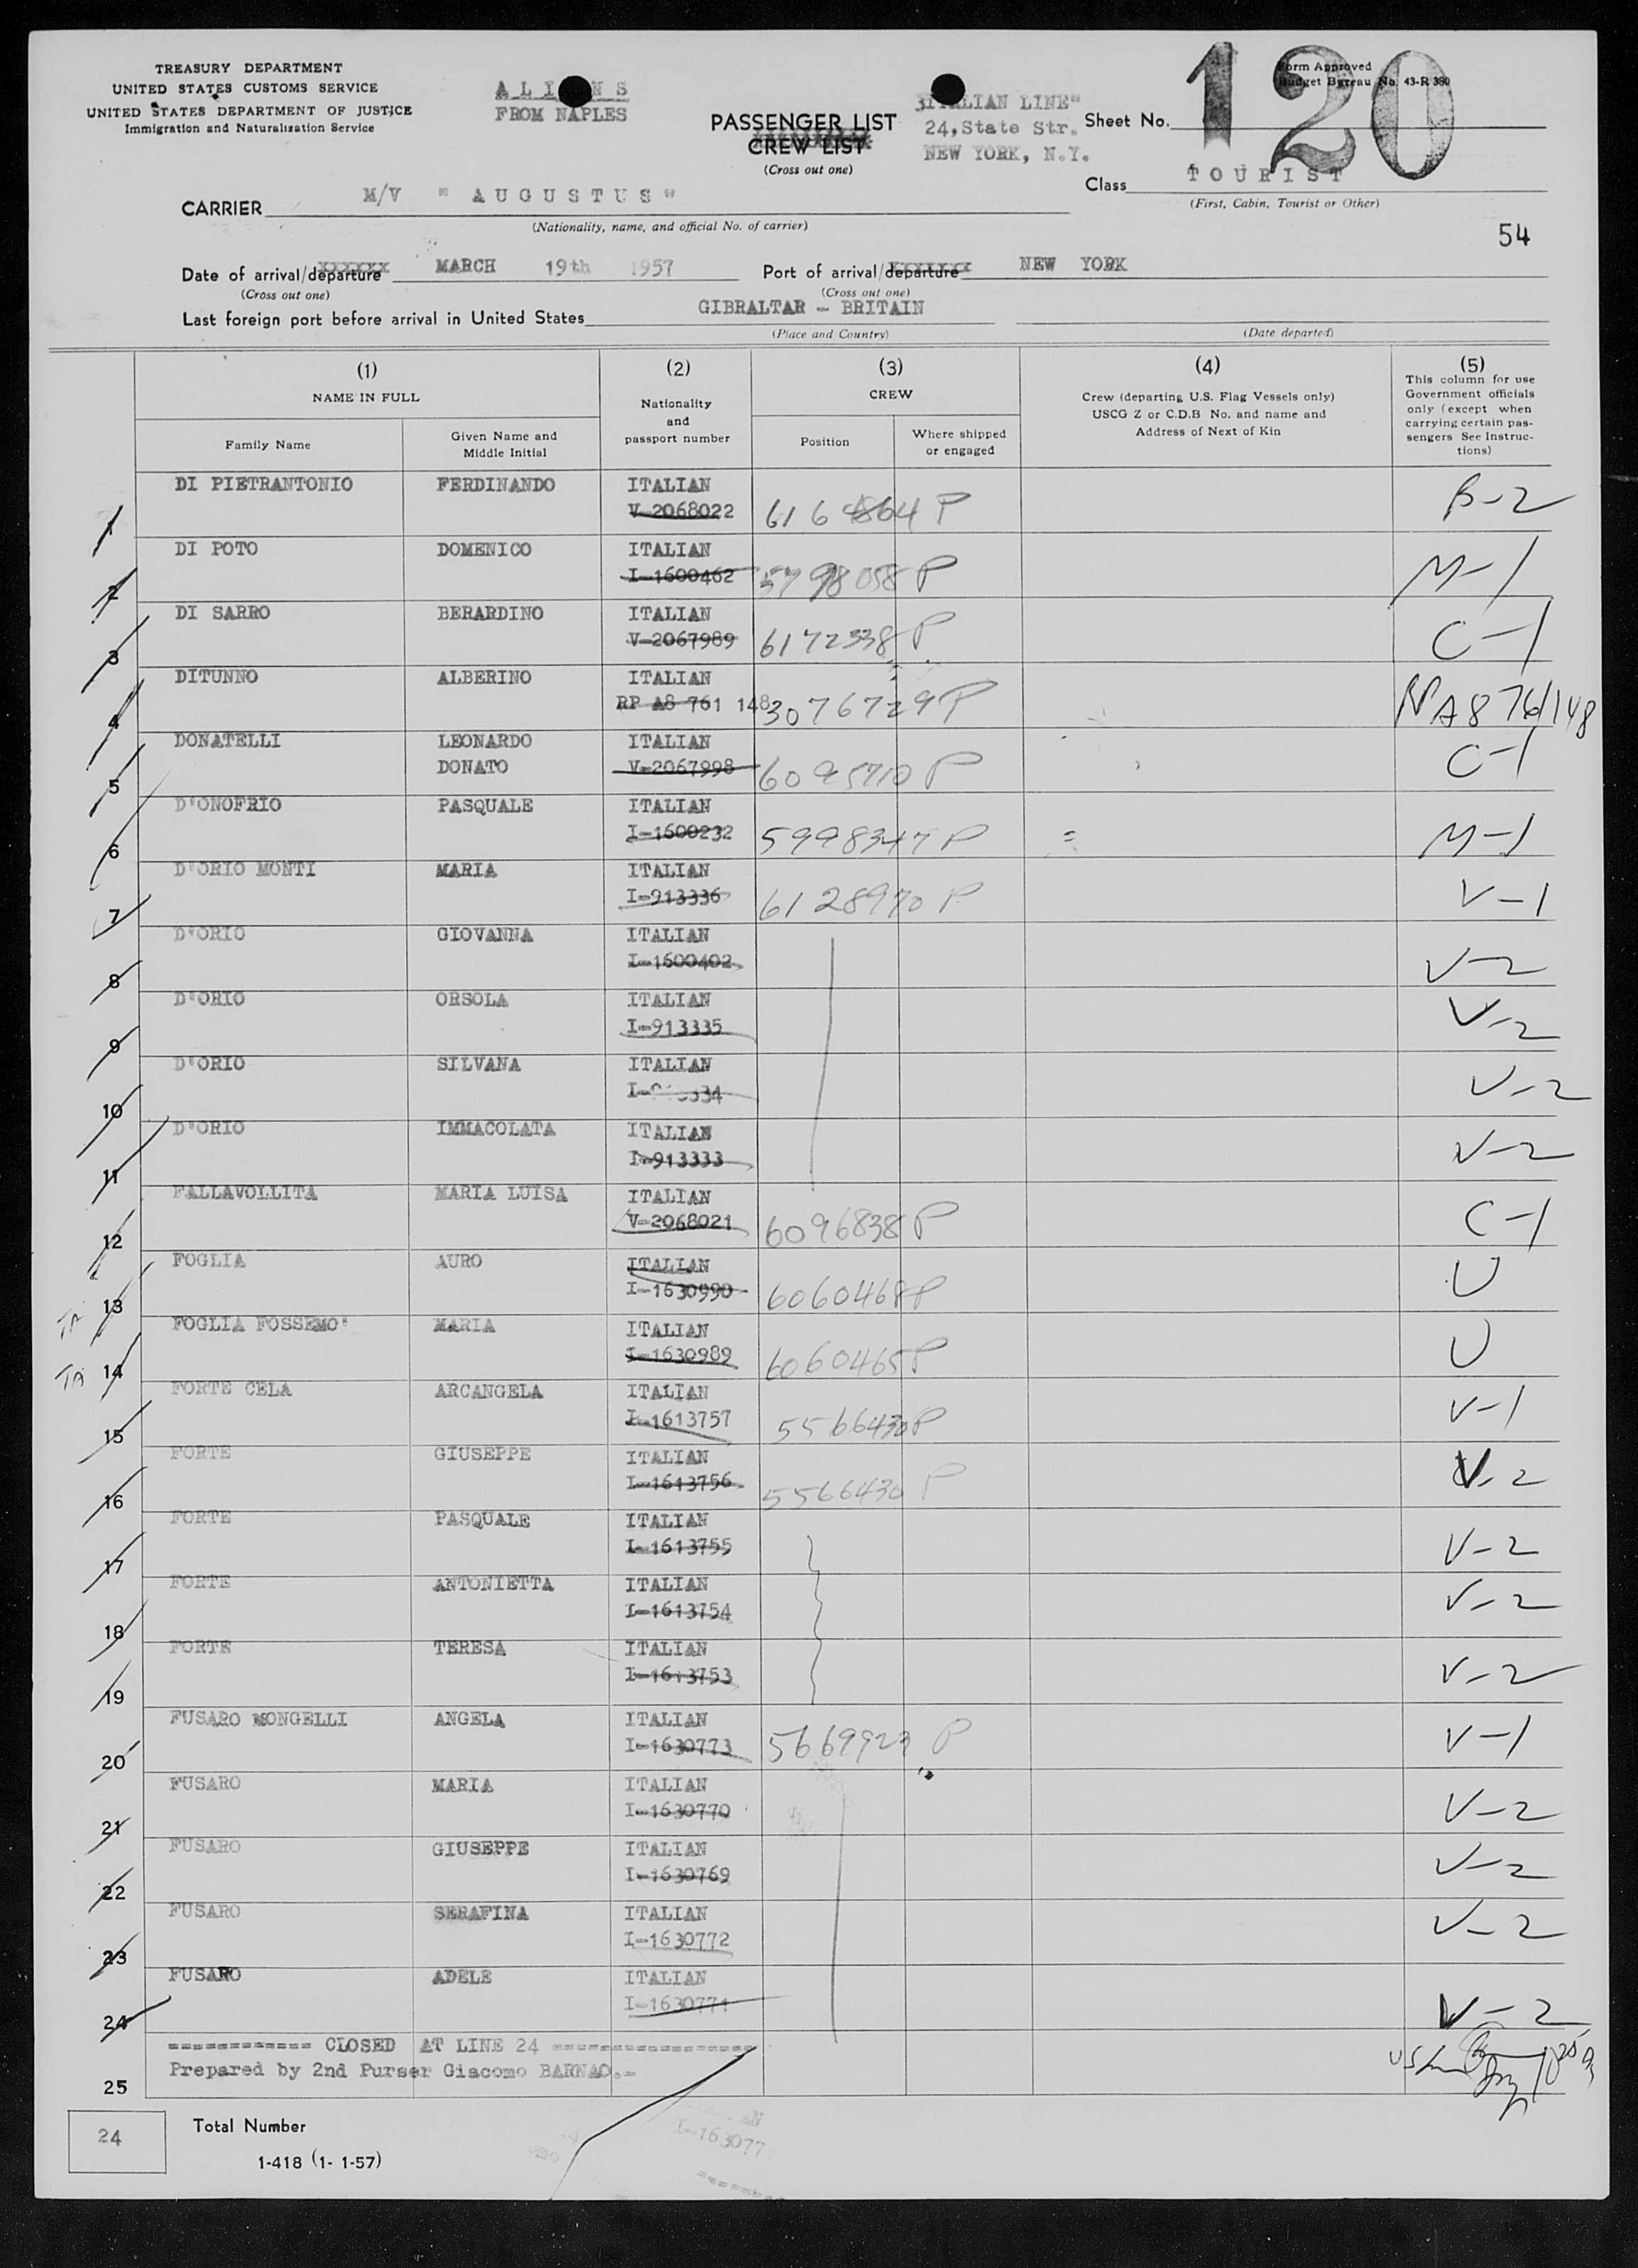 TREASURY DEPARTMENT
UNITED STATES CUSTOMS SERVICE
UNITED STATES DEPARTMENT OF JUSTICE
Immigration and Naturalization Service
FROM NAPLES
PASSENGER LIST
CREW LIST
(Cross out one)
LIAN LINE"
24,State Str.
NEW YORK, N.Y.
Form Approved
Budget Bureau No. 43-R 380
Sheet No.
120
Class TOURIST
(First, Cabin, Tourist or Other)
CARRIER M/V " AUGUSTUS "
(Nationality, name, and official No. of carrier)
54
Date of arrival/departure MARCH 19th 1957
(Cross out one)
Port of arrival/departure NEW YORK
(Cross out one)
Last foreign port before arrival in United States GIBRALTAR - BRITAIN
(Place and Country)
(Date departed)
(1)
NAME IN FULL
Family Name
Given Name and
Middle Initial
(2)
Nationality
and
passport number
(3)
CREW
Position
Where shipped
or engaged
(4)
Crew (departing U.S. Flag Vessels only)
USCG Z or C.D.B No. and name and
Address of Next of Kin
(5)
This column for use
Government officials
only (except when
carrying certain pas-
sengers See Instruc-
tions)
1 DI PIETRANTONIO FERDINANDO ITALIAN B-2
V-2068022
2 DI POTO DOMENICO ITALIAN M-1
I-1600462
3 DI SARRO BERARDINO ITALIAN C-1
V-2067989 6172338 P
4 DITUNNO ALBERINO ITALIAN
RP A8 761 148 3076729 P RP A8 761148
5 DONATELLI LEONARDO ITALIAN C-1
DONATO V-2067998 6095710 P
6 D'ONOFRIO PASQUALE ITALIAN M-1
I-1600232 5998347 P
7 D'ORIO MONTI MARIA ITALIAN V-1
I-913336 6128970 P
8 D'ORIO GIOVANNA ITALIAN V-2
I-1600402
9 D'ORIO ORSOLA ITALIAN V-2
I-913335
10 D'ORIO SILVANA ITALIAN V-2
11 D'ORIO IMMACOLATA ITALIAN V-2
I-913333
12 FALLAVOLLITA MARIA LUISA ITALIAN C-1
V-2068021 6096838 P
TA 13 FOGLIA AURO ITALIAN U
I-1630990 6060468 P
TA 14 FOGLIA FOSSEMO' MARIA ITALIAN U
I-1630989 6060465 P
15 FORTE CELA ARCANGELA ITALIAN V-1
I-1613757 5566430 P
16 FORTE GIUSEPPE ITALIAN V-2
I-1613756 5566430 P
17 FORTE PASQUALE ITALIAN V-2
I-1613755
18 FORTE ANTONIETTA ITALIAN V-2
I-1613754
19 FORTE TERESA ITALIAN V-2
I-1613753
20 FUSARO MONGELLI ANGELA ITALIAN V-1
I-1630773 5669923 P
21 FUSARO MARIA ITALIAN V-2
I-1630770
22 FUSARO GIUSEPPE ITALIAN V-2
I-1630769
23 FUSARO SERAFINA ITALIAN V-2
I-1630772
24 FUSARO ADELE ITALIAN V-2
I-1630771
============ CLOSED AT LINE 24 =================
Prepared by 2nd Purser Giacomo BARNAO.-
25
24 Total Number
I-418 (1- 1-57)
I-163077